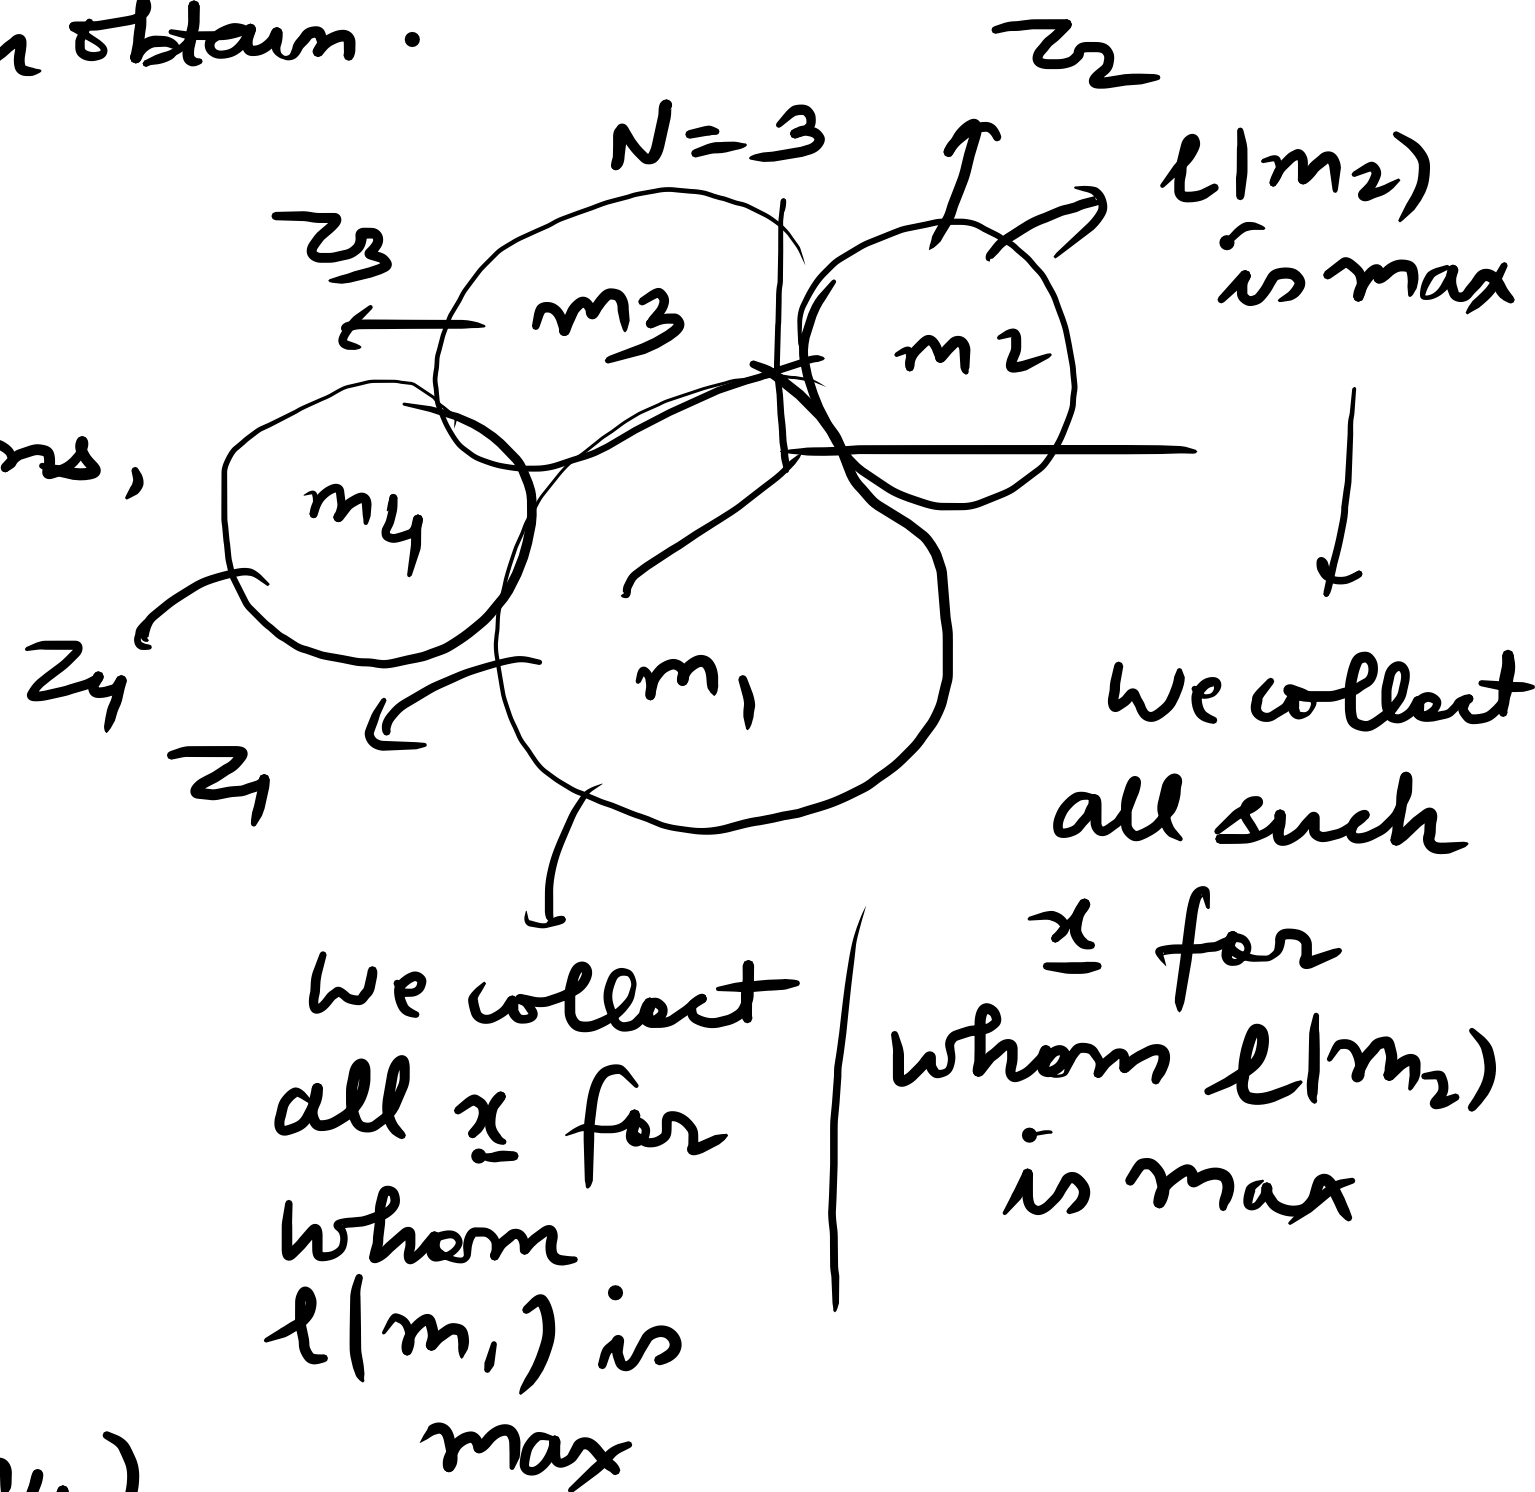 obtain.
N = 3
Z2
l(m2)
is max
Z3
m3
m2
ms,
m4
m1
Z4
Z1
we collect
all such
x for
whom l(m2)
is max
we collect
all x for
whom
l(m1) is
max